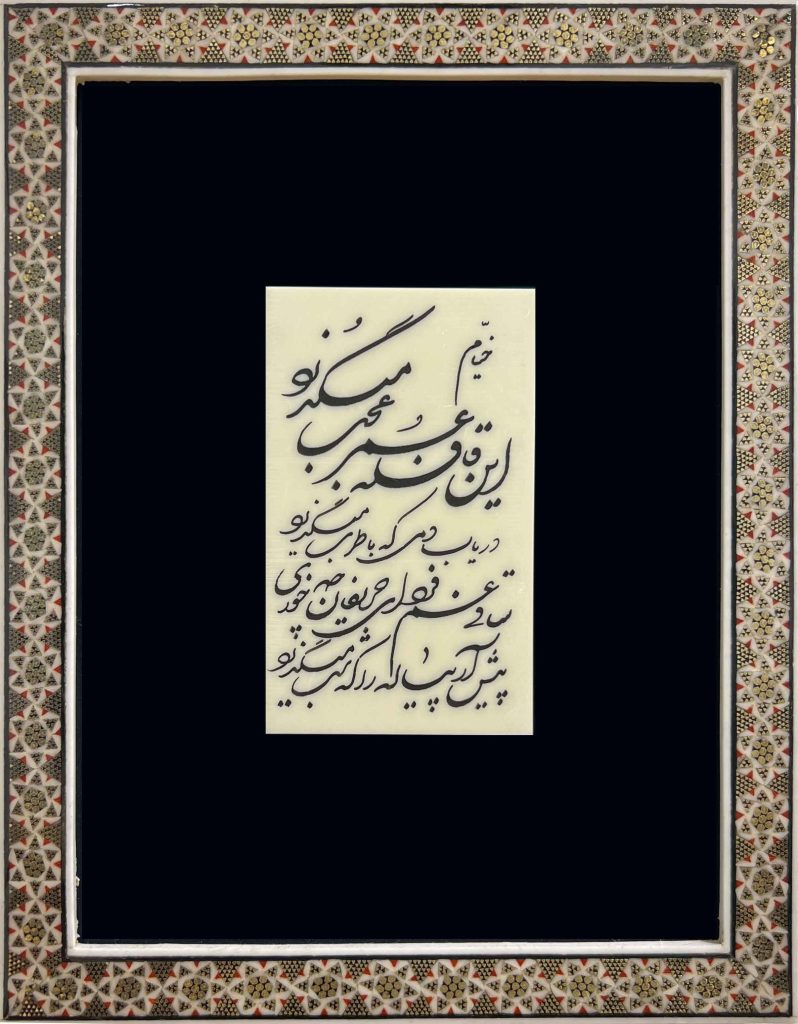 خیّام
این قافله عمر عجب میگذرد
دریاب دمی که با طرب میگذرد
ساقی غم فردای حریفان چه خوری
پیش آر پیاله را که شب میگذرد